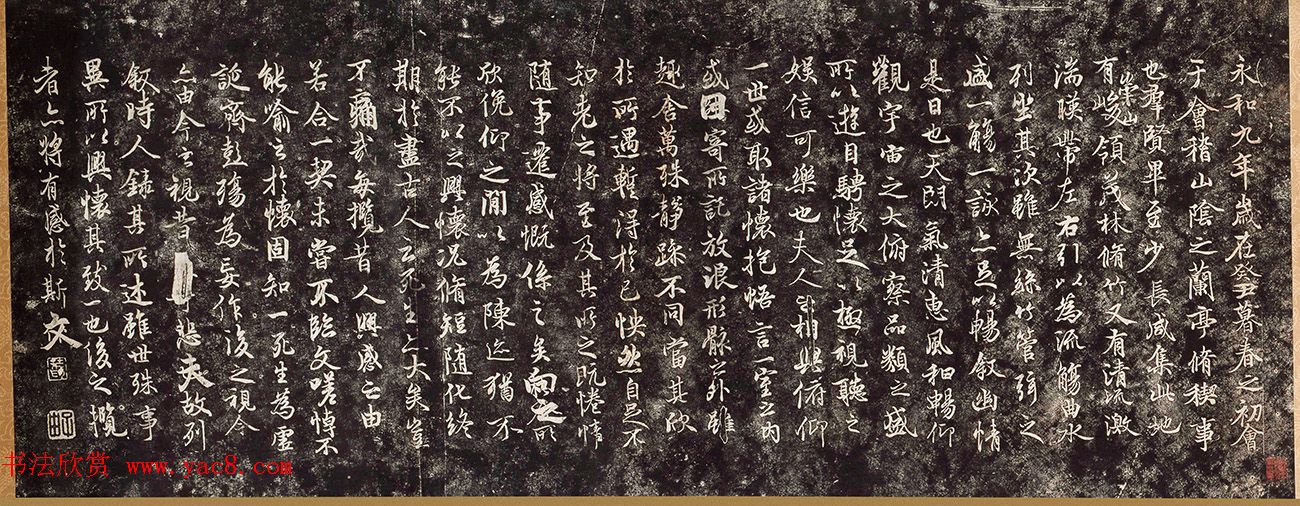 永和九年歲在癸丑暮春之初會
于會稽山陰之蘭亭脩稧事
也羣賢畢至少長咸集此地
有崇山峻領茂林脩竹又有清流激
湍暎帶左右引以為流觴曲水
列坐其次雖無絲竹管弦之
盛一觴一詠亦足以暢敘幽情
是日也天朗氣清惠風和暢仰
觀宇宙之大俯察品類之盛
所以遊目騁懷足以極視聽之
娛信可樂也夫人之相與俯仰
一世或取諸懷抱悟言一室之內
或因寄所託放浪形骸之外雖
趣舍萬殊靜躁不同當其欣
於所遇蹔得於己怏然自足不
知老之將至及其所之既惓情
隨事遷感慨係之矣向之所
欣俛仰之閒以為陳迹猶不
能不以之興懷況脩短隨化終
期於盡古人云死生亦大矣豈
不痛哉每攬昔人興感之由
若合一契未嘗不臨文嗟悼不
能喻之於懷固知一死生為虛
誕齊彭殤為妄作後之視今
亦由今之視昔悲夫故列
敘時人錄其所述雖世殊事
異所以興懷其致一也後之攬
者亦將有感於斯文
书法欣赏 www.yac8.com